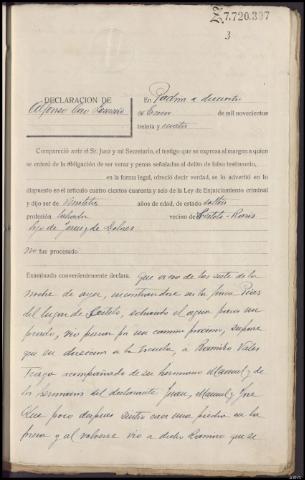 Z.7.720.397
3
DECLARACION DE
En Padrón a
de Enero de mil novecientos
treinta y cuatro
Compareció ante el Sr. Juez y mi Secretario, el testigo que se expresa al margen a quien
se enteró de la obligación de ser veraz y penas señaladas al delito de falso testimonio,
en la forma legal, ofreció decir verdad, se le advirtió en lo
dispuesto en el artículo cuatro cientos cuarenta y seis de la Ley de Enjuiciamiento criminal
y dijo ser de años de edad, de estado soltero
profesión labrador vecino de
hijo de y de Dolores
no fué procesado
Examinado convenientemente declara: Que a eso de las siete de la
noche de ayer, encontrándose en la
del lugar de echando el agua para un
prado, vió pasar por un camino próximo, supone
que en dirección a la Escuela, a Ramiro
Trago acompañado de su hermano Manuel y de
los hermanos del declarante Juan, Manuel y José
Que poco después sintió caer una piedra en la
y al volverse vió a dicho Ramiro que se